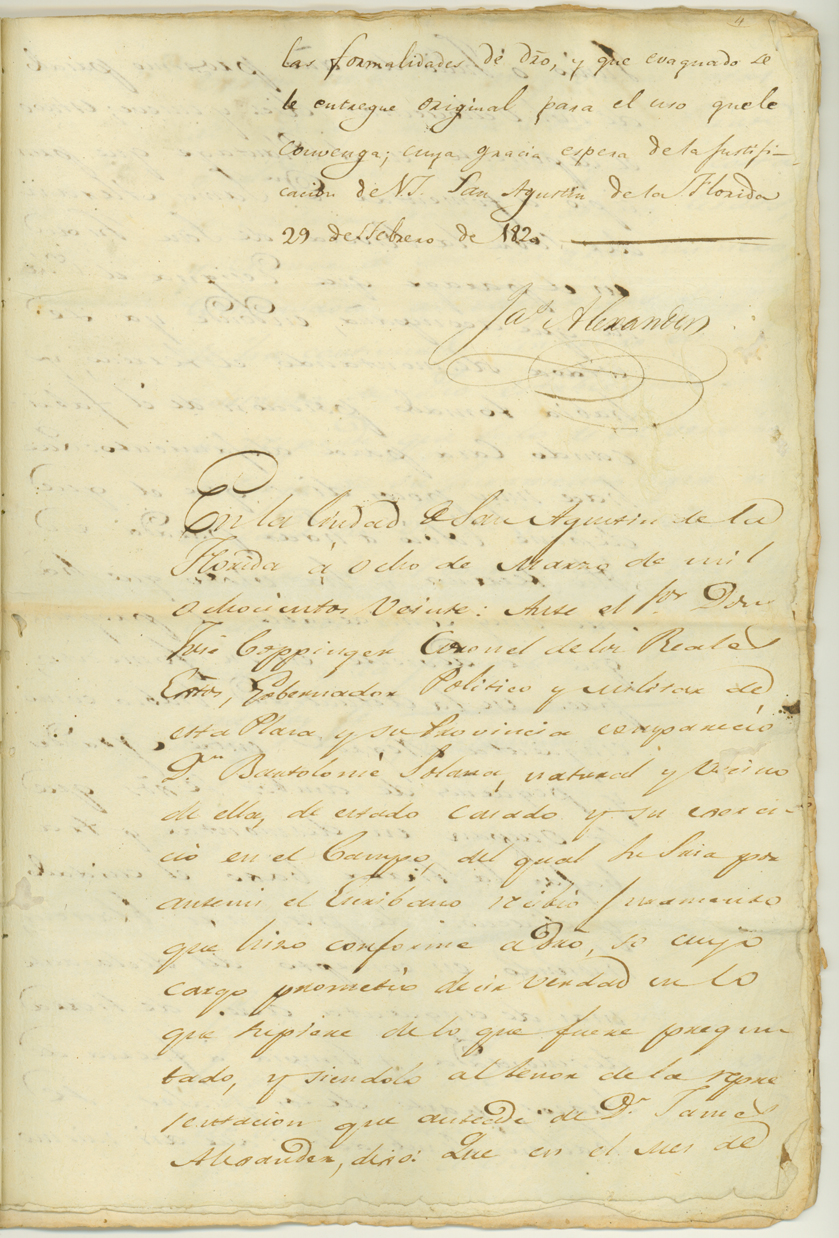 4
las formalidades de dro, y que evaquado se
le entregue original para el uso quele
convenga; cuya gracia espera de la Justifi-
cacion de V.S. San Agustin de la Florida
29 de Febrero de 1820
Jas. Alexander
En la Ciudad de San Agustin de la
Florida à ocho de Marzo de mil
ochocientos veinte: Ante el Sor. Don
José Coppinger Coronel de los Reales
Extos, Gobernador Politico y militar de
esta Plaza y su Provincia comparecio
Dn. Bartolomé Solana, natural y vecino
de ella, de estado casado y su exerci-
cio en el Campo, del qual Su Sria por
antemi el Escribano recibió juramento
que hizo conforme a dro, so cuyo
cargo prometió decir verdad en lo
que supiere de lo que fuere pregun-
tado, y siendolo al tenor de la repre
sentacion que antecede de Dn. James
Alexander, dixo: Que en el mes de